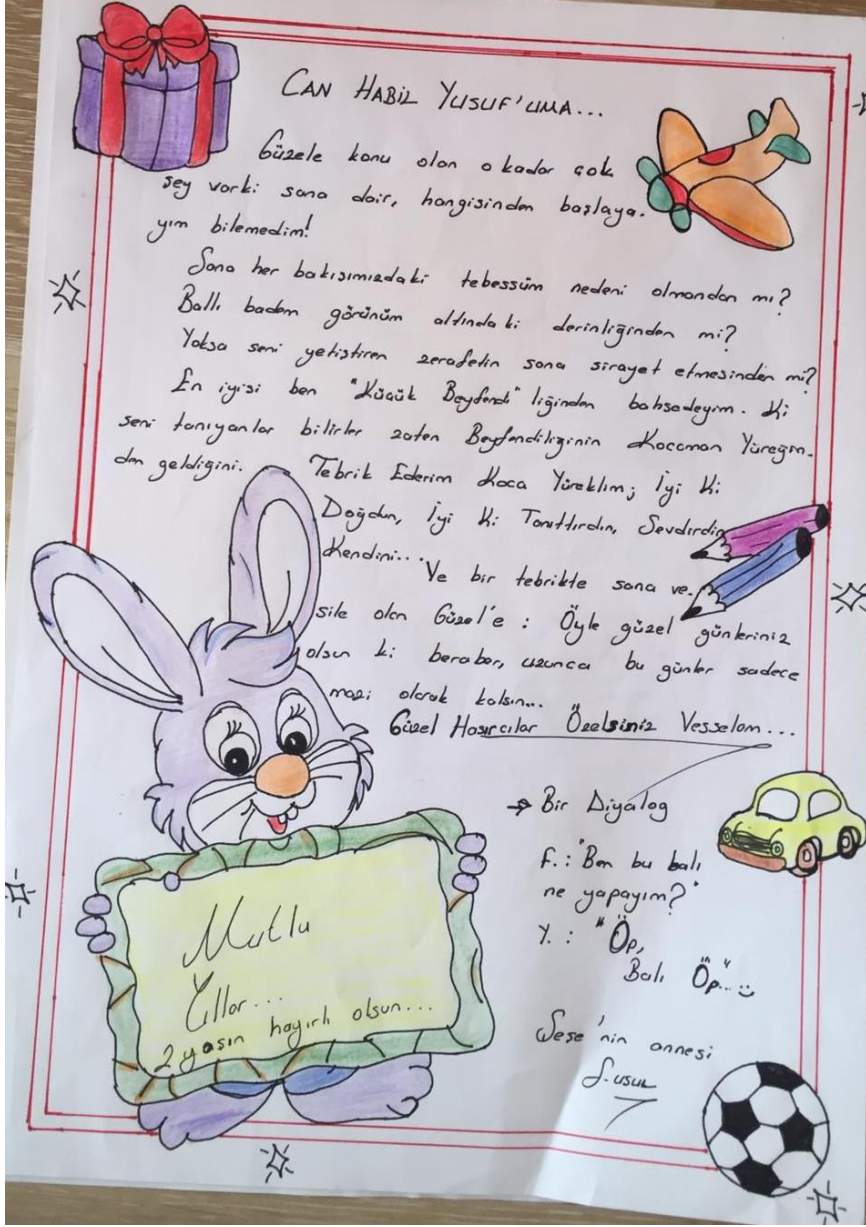 CAN HABİL YUSUF'UMA...
Güzele konu olan o kadar çok
şey varki sana dair, hangisinden başlaya-
yım bilemedim!
Sana her bakışımızdaki tebessüm nedeni olmandan mı?
Ballı badem görünüm altında ki derinliğinden mi?
Yoksa seni yetiştiren zerafetin sana sirayet etmesinden mi?
En iyisi ben "Küçük Beyfendi"liğinden bahsedeyim. Ki
seni tanıyanlar bilirler zaten Beyfendiliğinin Kocaman Yüreğin-
den geldiğini.
Tebrik Ederim Koca Yüreklim; İyi Ki
Doğdun, İyi Ki Tanıttırdın, Sevdirdin
Kendini...
Ve bir tebrikte sana ve-
sile olan Güzel'e : Öyle güzel günleriniz
olsun ki beraber, uzunca bu günler sadece
mazi olarak kalsın...
Güzel Hasırcılar Özelsiniz Vesselam...
→ Bir Diyalog
F.: "Ben bu balı
ne yapayım?"
Y. : "Öp,
Balı Öp..."
Mutlu
Yıllar...
2 yaşın hayırlı olsun...
annesi